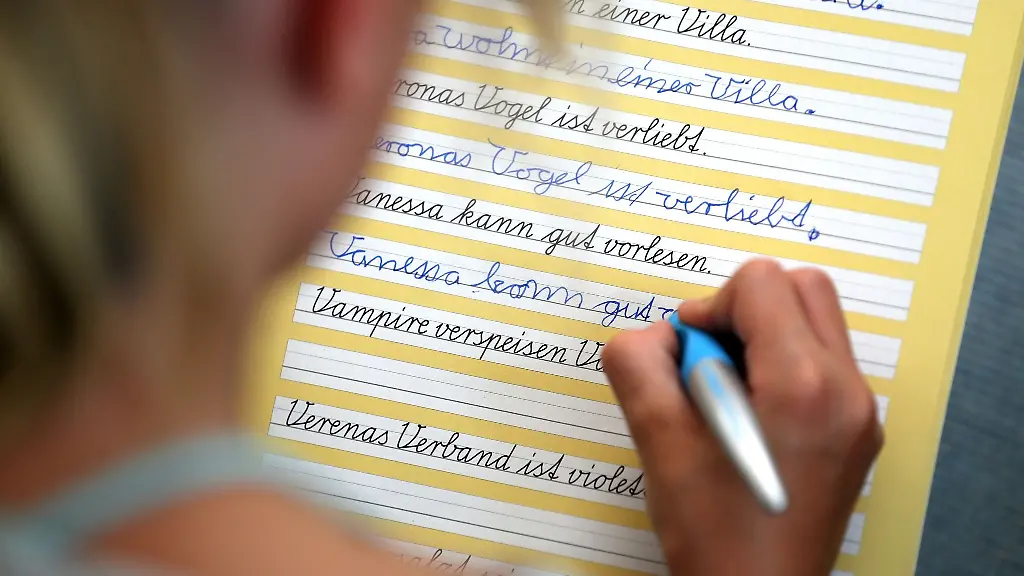 einer Villa.
wohn in einer Villa.
Vogel ist verliebt.
Vogel ist verliebt.
Vanessa kann gut vorlesen.
Vanessa kann gut
Vampire verspeisen
Verenas Verband ist violet